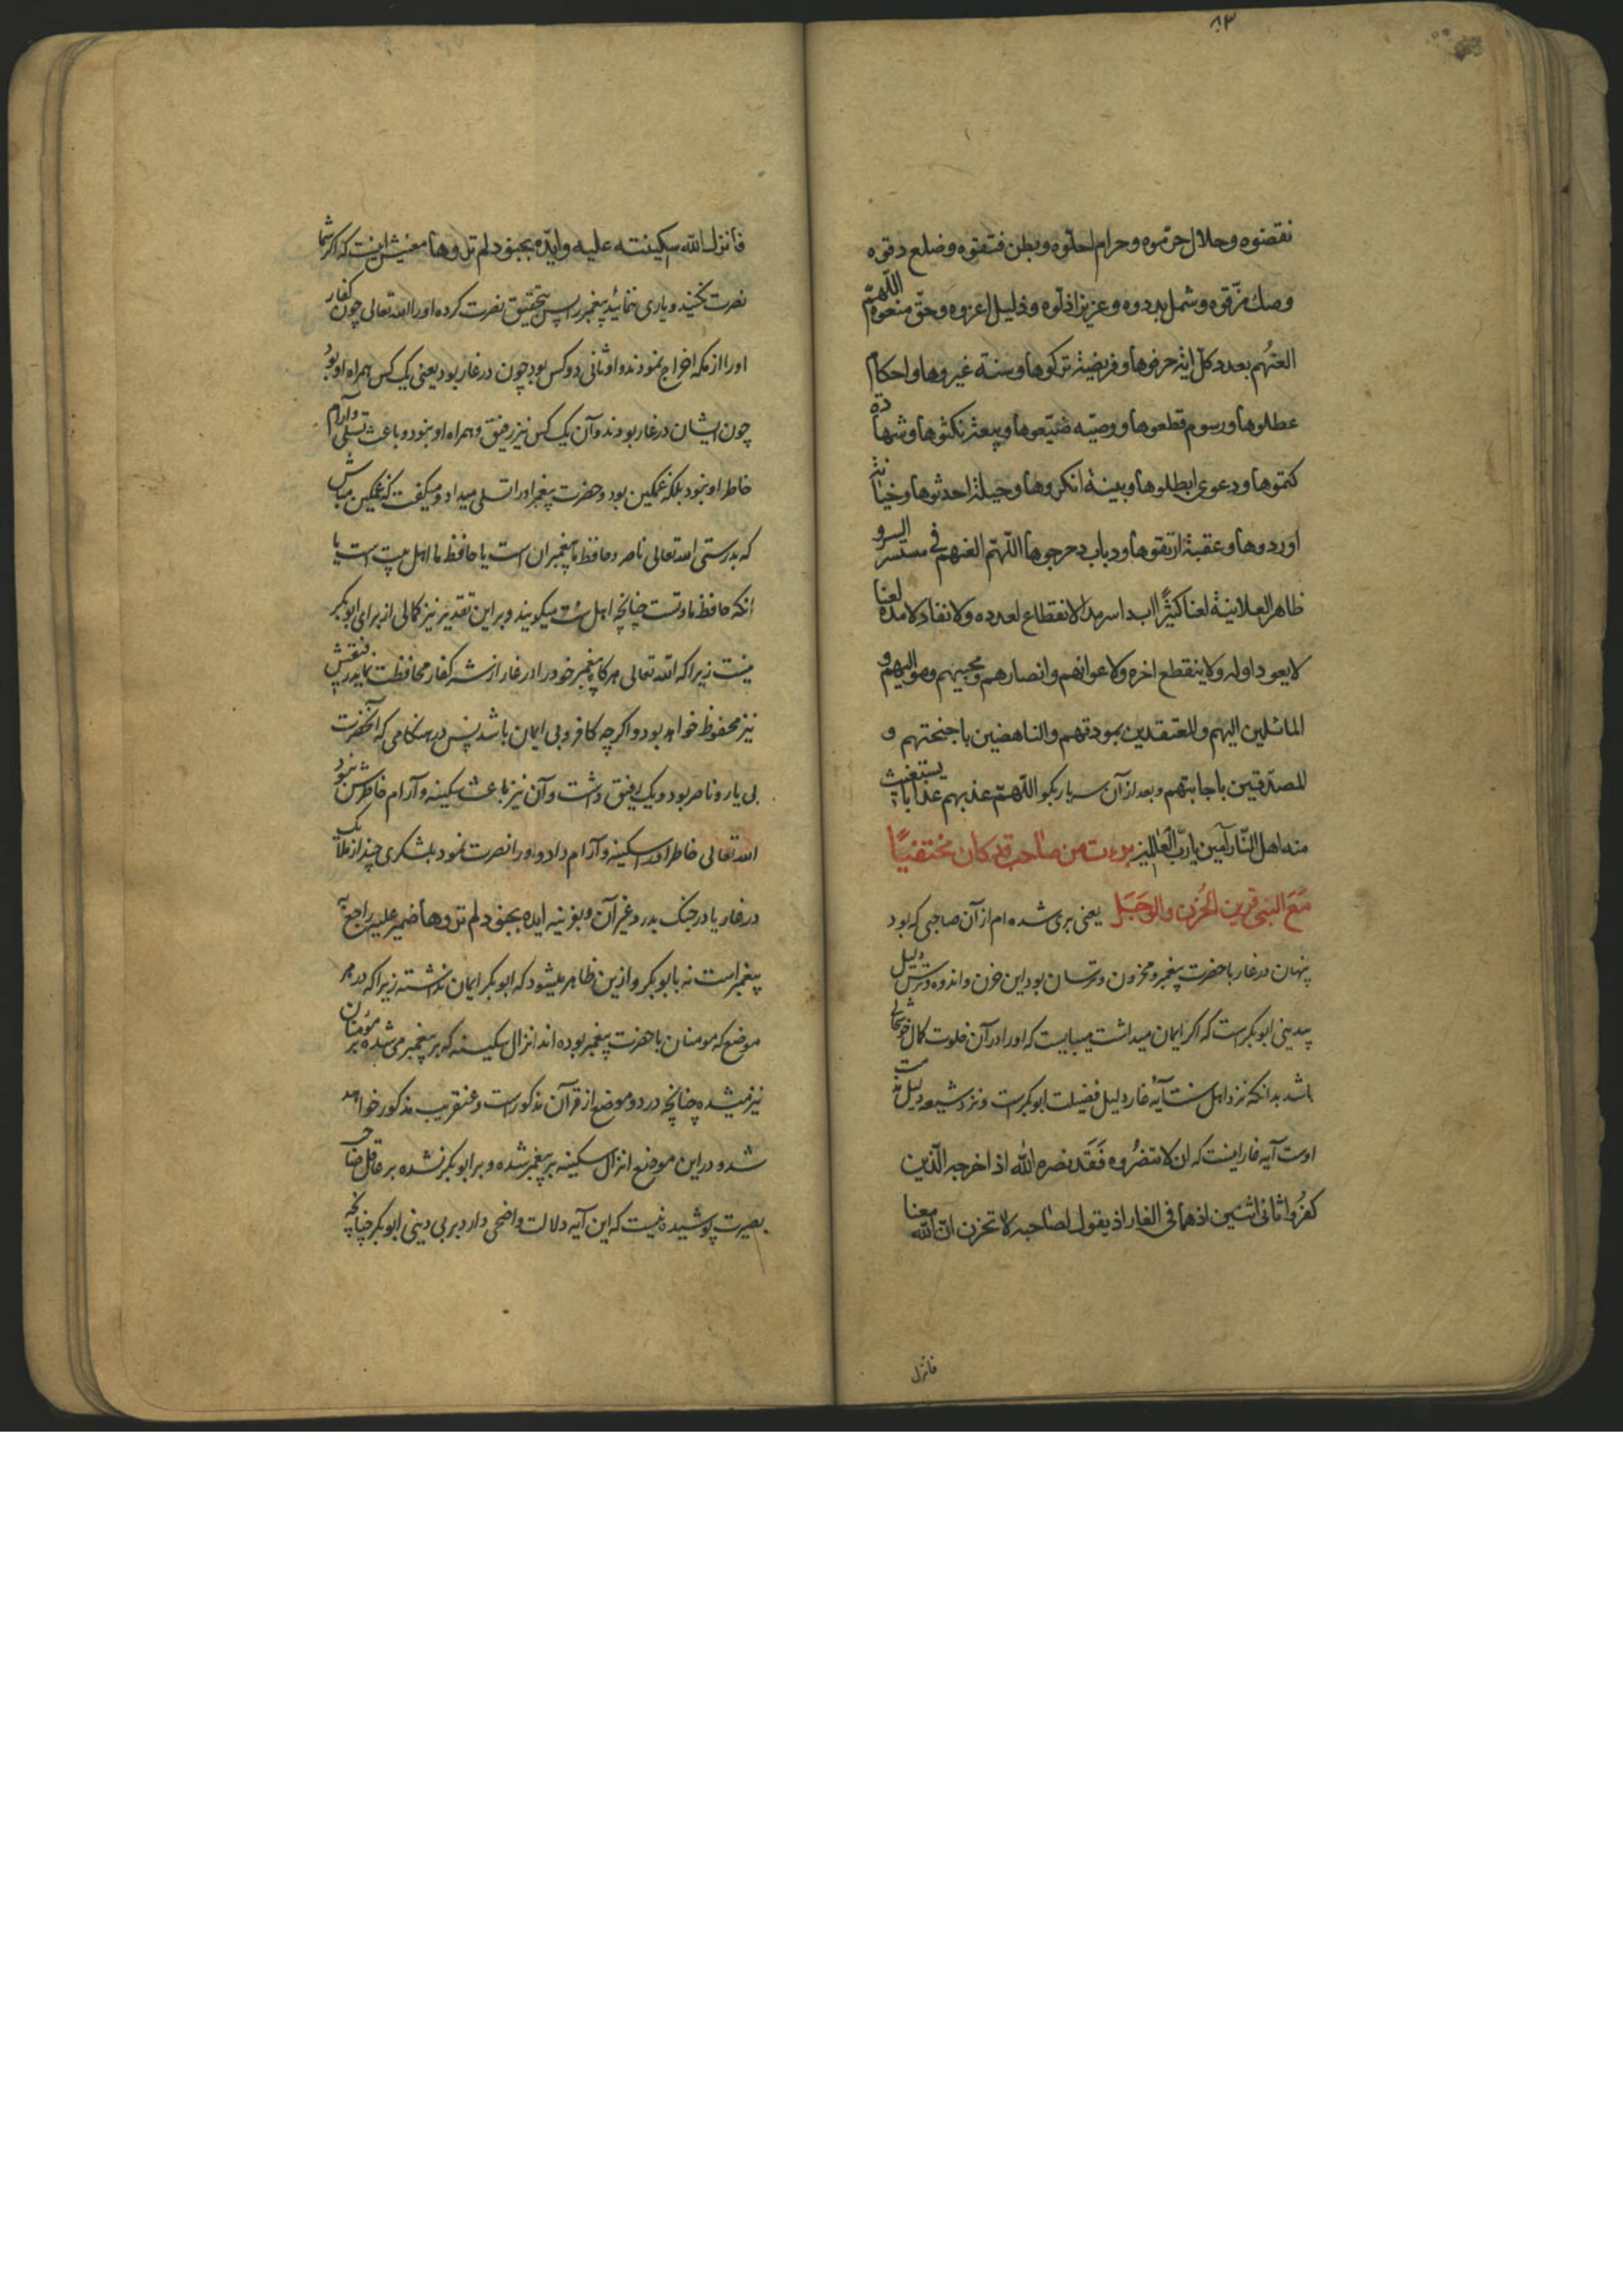 ۸۳
نقضوه وحلال حرّموه وحرام احلّوه وبطن فتقوه وضلع دقوه
وصك مزّقوه وشمل بددوه وعزيز اذلّوه وذليل اعزوه وحقّ منعوه اللّهمّ
العنهم بعدد كلّ اية حرفوها وفريضة تركوها وسنة غيروها واحكام
عطلوها ورسوم قطعوها ووصيّه ضيّعوها وبيعة نكثوها وشهادة
كتموها ودعوى ابطلوها وبينة انكروها وحيلة احدثوها وخيانة
اوردوها وعقبة ارتقوها ودباب دحرجوها اللّهمّ العنهم فى مستسر السر و
ظاهر العلانية لعنا كثيرًا ابدا سرمدا لا انقطاع لعدده ولا نفاد لامده لعنا
لا يعود اوله ولا ينقطع اخره ولاعوانهم وانصارهم ومحبيهم ومواليهم و
المائلين اليهم والمعتقدين بمودتهم والناهضين باجنحتهم و
المصدّقين باجابتهم وبعد از آن سه بار بگو اللّهمّ عذبهم عذابا يستغيث
منه اهل النّار آمين يا ربّ العالمين برءت من صاحب قد كان مختفيًا
مَعَ النبى قرين الحُزن والوَجَل يعنى برى شده ام از آن صاحبى كه بود
پنهان در غار با حضرت پيغمبر و محزون و ترسان بود اين حزن و اندوه و ترس دليل
بيدينى ابو بكرست كه اكر ايمان ميداشت ميبايست كه او را در آن خلوت كمال خوشحالى
باشد بدانكه نزد اهل سنت آيۀ غار دليل فضيلت ابو بكرست و نزد شيعه دليل مذمت
اوست آيه غار اينست كه ان لا تنصُرُوه فَقَد نصره اللّه اذ اخرجه الّذين
كفرُوا ثانى اثنين اذ هما فى الغار اذ يقول لصاحبه لا تحزن انّ اللّه معنا
فانزل
فانزل اللّه سكينته عليه وايّده بجنود لم تروها معنيش اينست كه اكر شما
نصرت نكنيد و يارى ننمائيد پيغمبر را پس بتحقيق نصرت كرده او را اللّه تعالى چون كفار
او را از مكه اخراج نمودند و او ثانى دو كس بود چون در غار بود يعنى يك كس همراه او بود
چون ايشان در غار بودند و آن يك كس نيز رفيق و همراه او نبود و باعث تسلى و آرام
خاطر او نبود بلكه غمكين بود و حضرت پيغمبر او را تسلى ميداد و ميكفت كه غمكين مباش
كه بدرستى اللّه تعالى ناصر و حافظ ما پيغمبران است يا حافظ ما اهل بيت است يا
انكه حافظ ما و تست چنانچه اهل سنت ميكويند و بر اين تقدير نيز كمالى از براى ابو بكر
نيست زيرا كه اللّه تعالى هر كاه پيغمبر خود را در غار از شر كفار محافظت نمايد رفيقش
نيز محفوظ خواهد بود و اكر چه كافر و بى ايمان باشد پس در هنكامى كه آنحضرت
بى يار و ناصر بود و يك رفيق داشت و آن نيز باعث سكينه و آرام خاطرش نبود
اللّه تعالى خاطر او را سكينه و آرام داد و او را نصرت نمود بلشكرى چند از ملائك
در غار يا در جنك بدر و غير آن و بقرينه ايده بجنود لم تروها ضمير عليه راجع به
پيغمبر است نه بابو بكر و ازين ظاهر ميشود كه ابو بكر ايمان نداشته زيرا كه در هر
موضع كه مومنان با حضرت پيغمبر بوده اند انزال سكينه كه بر پيغمبر مى شده بر مؤمنان
نيز ميشده چنانچه در دو موضع از قرآن مذكور است و عنقريب مذكور خواهد
شد و در اين موضع انزال سكينه بر پيغمبر شده و بر ابو بكر نشده بر عاقل صاحب
بصيرت پوشيده نيست كه اين آيه دلالت واضحى دارد بر بى دينى ابو بكر چنانچه